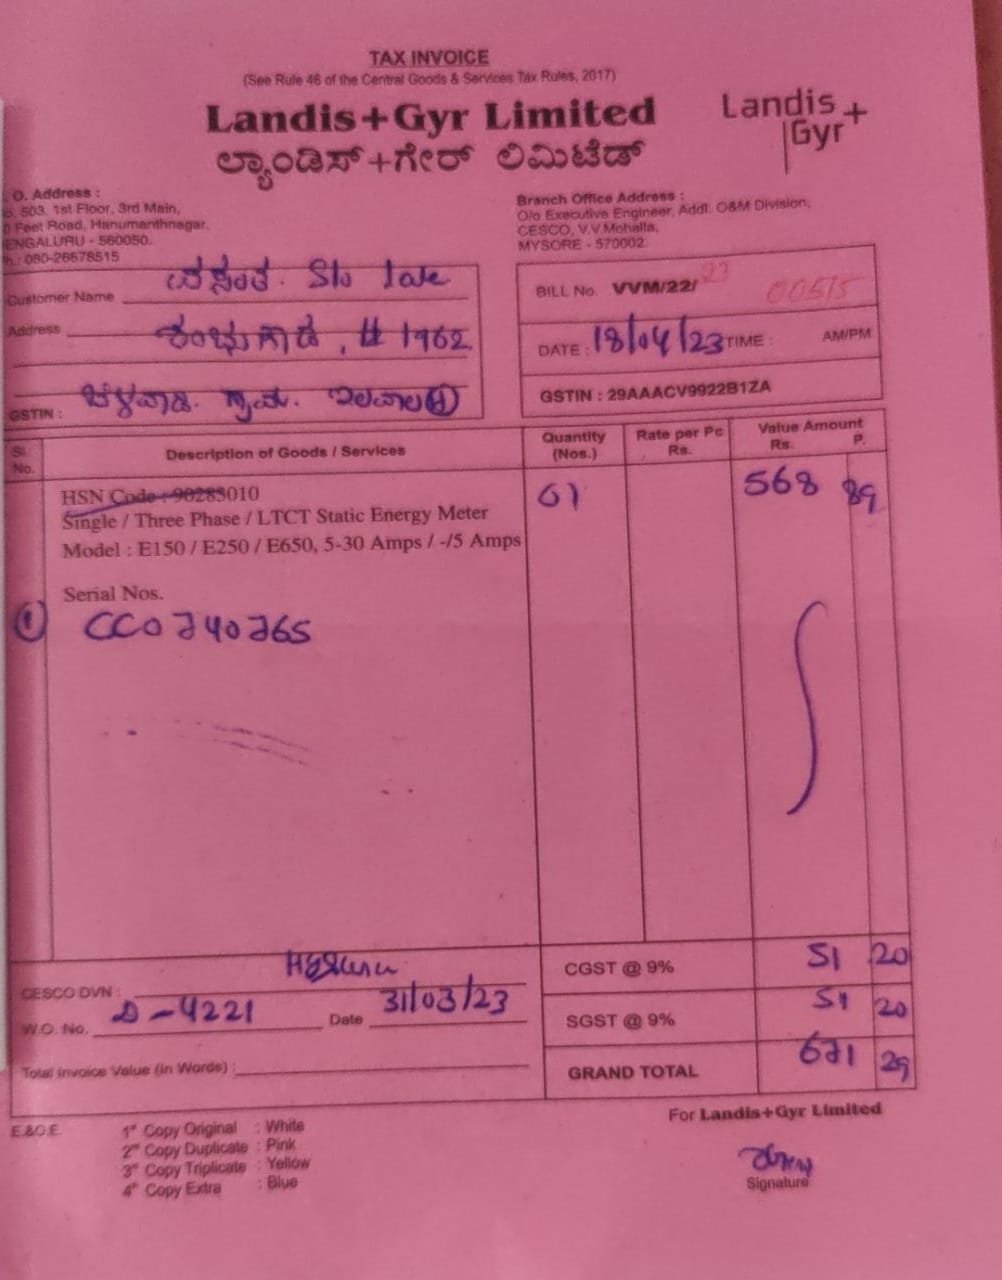 TAX INVOICE
(See Rule 46 of the Central Goods & Services Tax Rules, 2017)
Landis+Gyr Limited
ಲ್ಯಾಂಡಿಸ್+ಗೇರ್ ಲಿಮಿಟೆಡ್
Landis+
Gyr
O. Address :
503, 1st Floor, 3rd Main,
Feet Road, Hanumanthnagar,
ENGALURU - 560050.
: 080-26678515
Branch Office Address :
O/o Executive Engineer, Addl. O&M Division,
CESCO, V.V.Mohalla,
MYSORE - 570002.
Customer Name ವಸಂತ. S/o late
Address # 1962
GSTIN :
BILL No. VVM/22/23 00515
DATE : 18/04/23 TIME : AM/PM
GSTIN : 29AAACV9922B1ZA
Sl. No. Description of Goods / Services Quantity (Nos.) Rate per Pc Rs. Value Amount Rs. P.
HSN Code : 90283010 01 568 89
Single / Three Phase / LTCT Static Energy Meter
Model : E150 / E250 / E650, 5-30 Amps / -/5 Amps
Serial Nos.
① CC0740765
CESCO DVN :
W.O. No. D-4221 Date 31/03/23
Total Invoice Value (In Words) :
CGST @ 9% 51 20
SGST @ 9% 51 20
GRAND TOTAL 671 29
E.&O.E.
1st Copy Original : White
2nd Copy Duplicate : Pink
3rd Copy Triplicate : Yellow
4th Copy Extra : Blue
For Landis+Gyr Limited
Signature